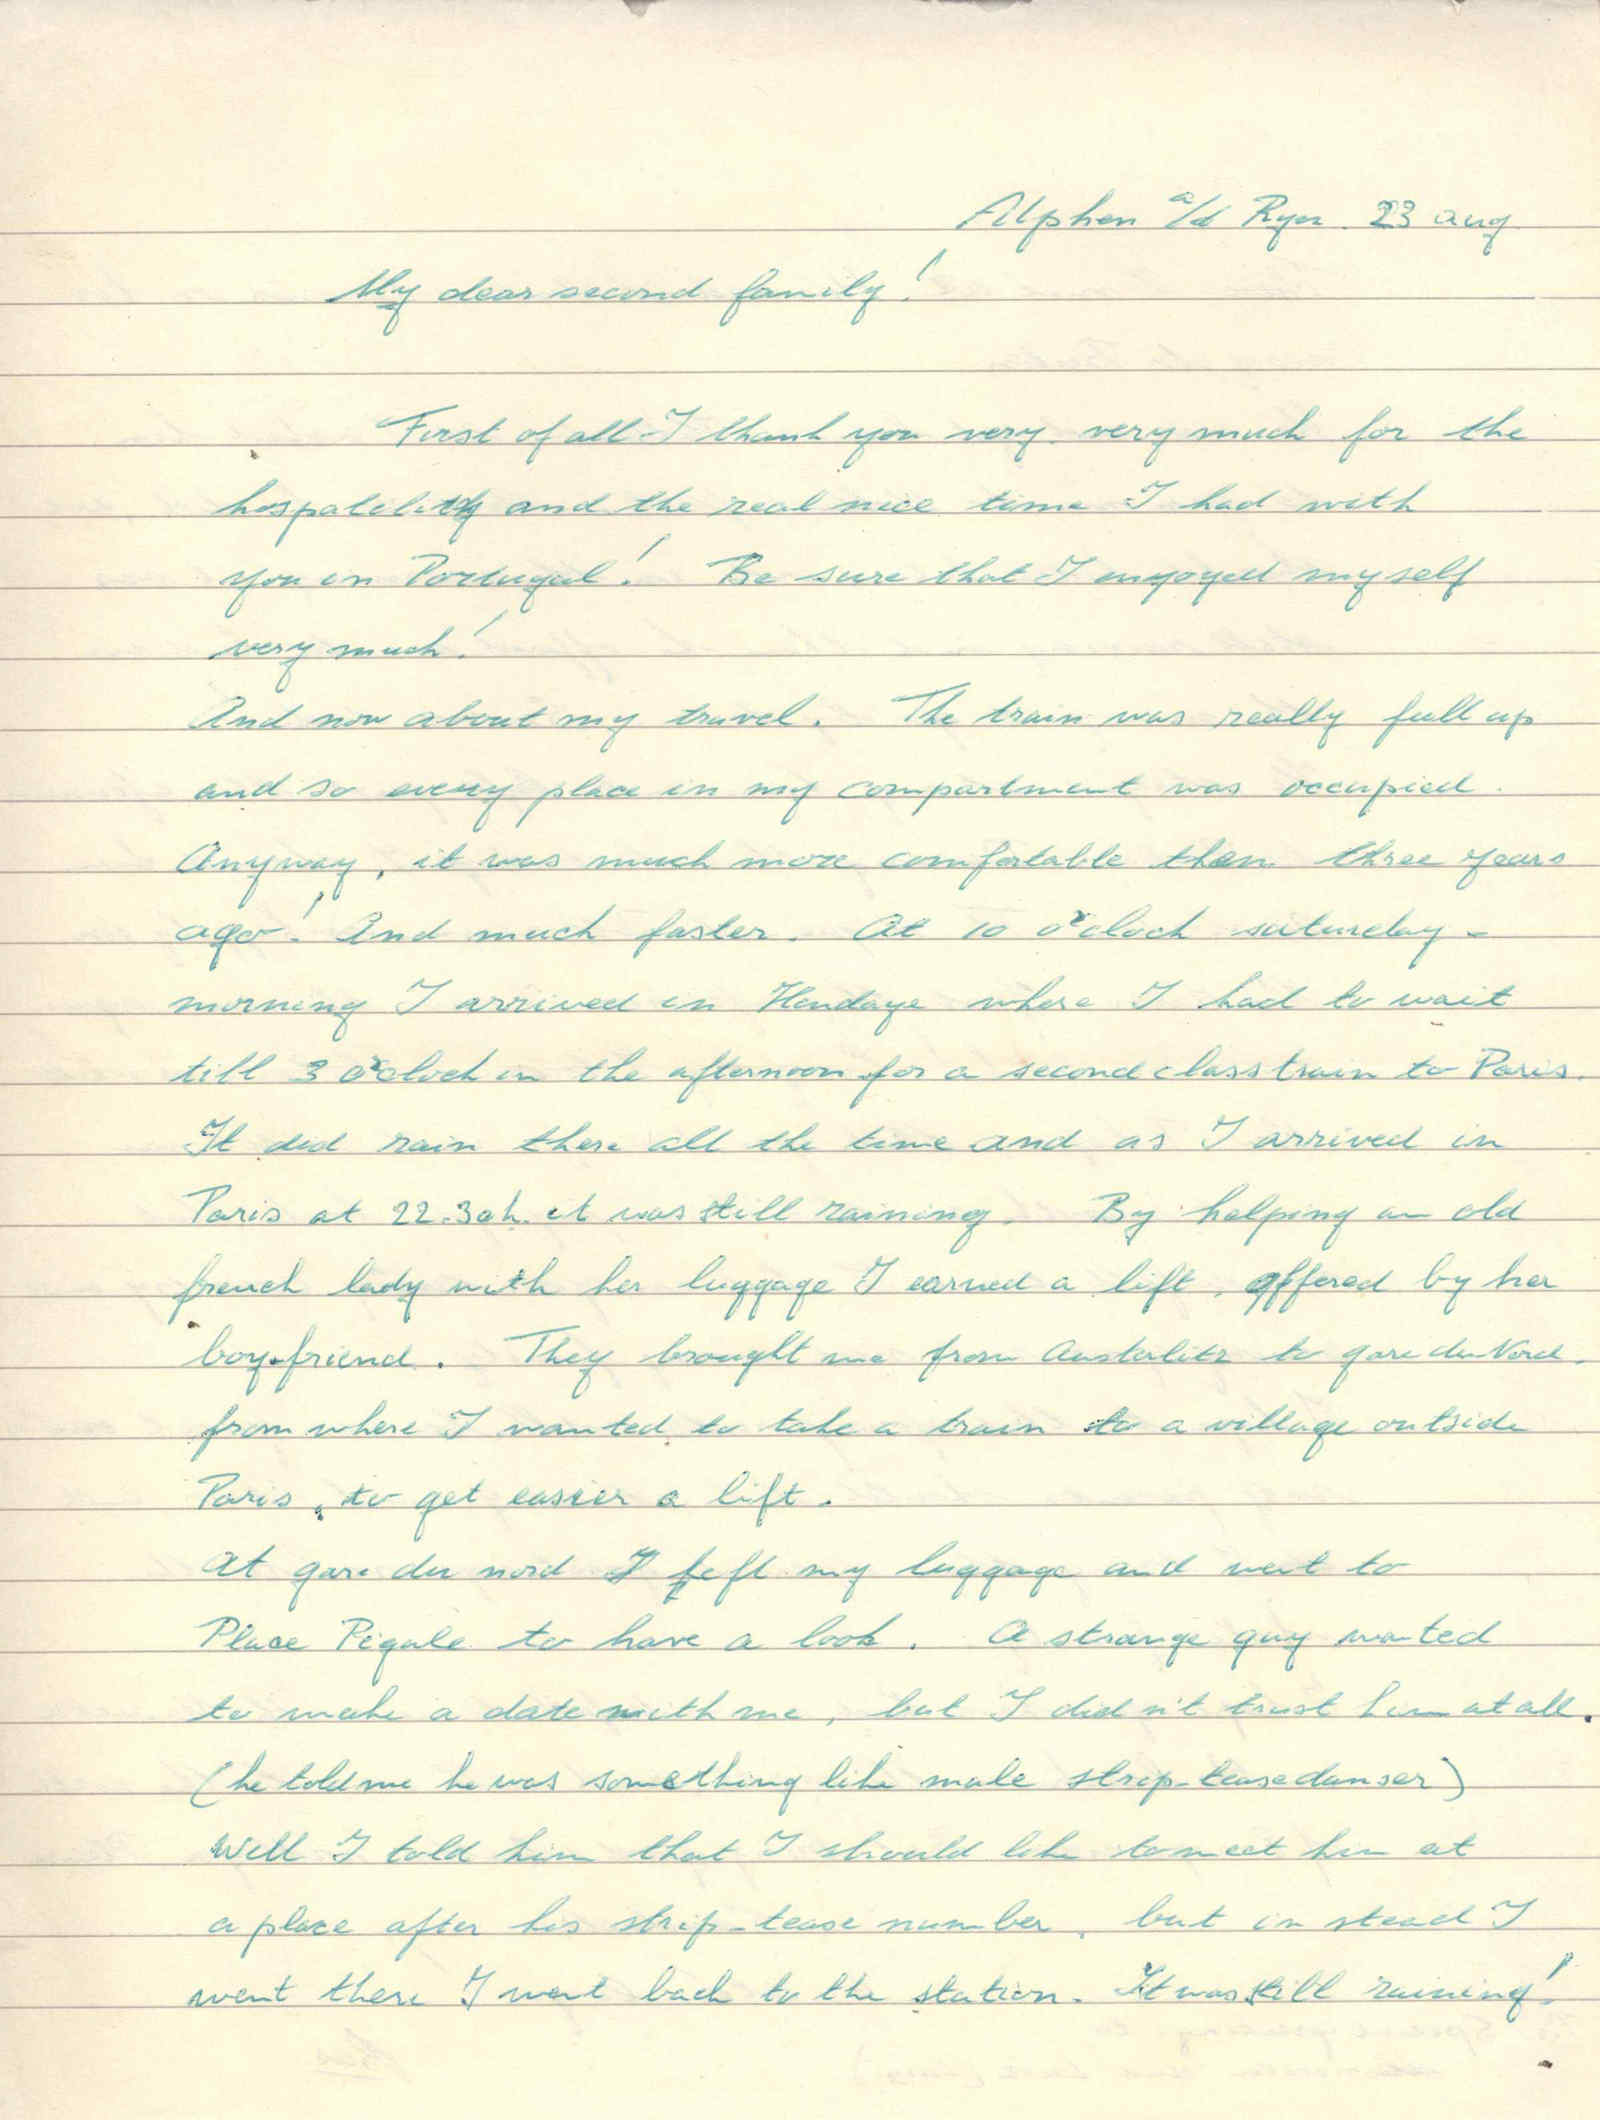 Alphen a/d Ryn. 23 aug
My dear second family!
First of all I thank you very very much for the
hospalility and the real nice time I had with
you in Portugal! Be sure that I enyoyed myself
very much!
And now about my travel. The train was really full up
and so every place in my compartment was occupied.
Anyway, it was much more comfortable then three years
ago! And much faster. At 10 o'cloch saturday-
morning I arrived in Hendaye where I had to wait
till 3 o'cloch in the afternoon for a second class train to Paris.
It did rain there all the time and as I arrived in
Paris at 22.30h. it was still raining. By helping an old
french lady with her luggage I earned a lift, offered by her
boy-friend. They brought me from Austerlitz to gare du Nord.
from where I wanted to take a train to a village outside
Paris, to get easier a lift.
At gare du nord I left my luggage and went to
Place Pigale to have a look. A strange guy wanted
to make a date with me, but I did n't trust him at all.
(he told me he was something like male strip-teasedanser)
Well I told him that I should like to meet him at
a place after his strip-tease number, but in stead I
went there I went back to the station. It was still raining!